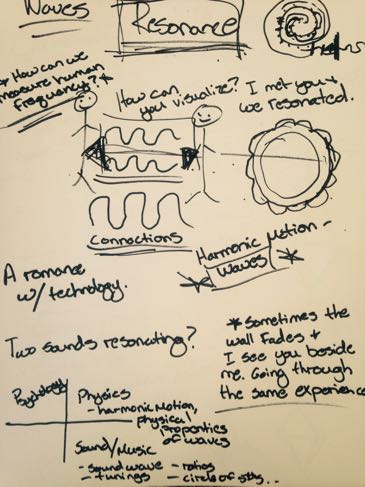 Waves
Resonance
* How can we
measure human
frequency? *
How can
you visualize?
I met you +
we resonated.
Connections
Harmonic Motion -
Waves
A romance
w/ technology.
Two sounds resonating?
* Sometimes the
wall fades +
I see you beside
me. Going through
the same experience
Psychology
Physics
- harmonic motion,
physical
properties
of waves
Sound/Music
- sound wave - ratios
- tunings - circle of 5ths..